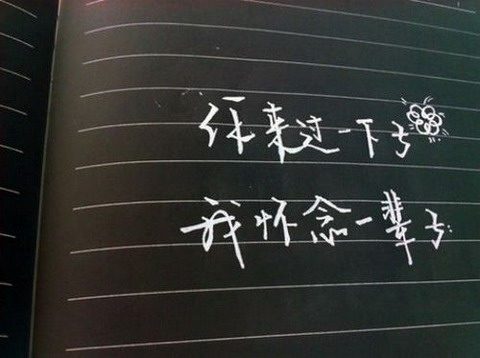 你来过一下子
我怀念一辈子